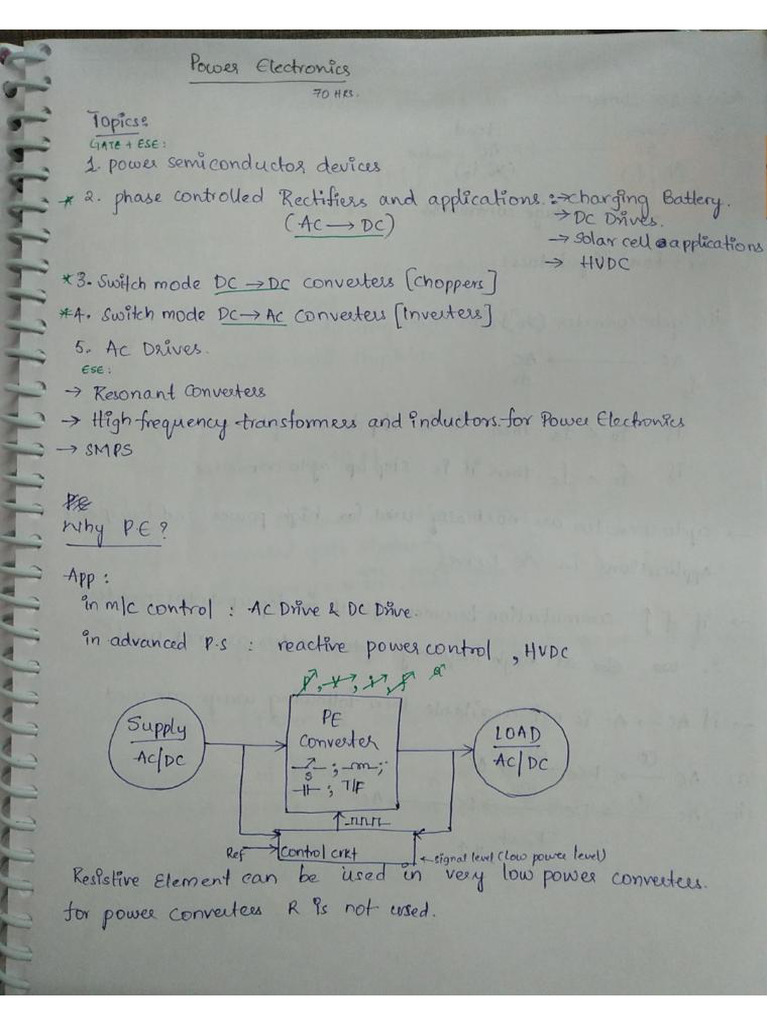 Power Electronics
70 HRS.
Topics:
GATE + ESE:
1. power semiconductor devices
* 2. phase controlled Rectifiers and applications. :→ charging Battery.
(AC → DC)
→ DC Drives.
→ Solar cell applications
→ HVDC
* 3. Switch mode DC → DC converters [choppers]
* 4. Switch mode DC → AC converters [Inverters]
5. AC Drives.
ESE:
→ Resonant Converters
→ High frequency transformers and inductors for Power Electronics
→ SMPS
Why P.E?
App:
in m/c control : AC Drive & DC Drive.
in advanced P.S : reactive power control, HVDC
Supply
AC/DC
PE
Converter
S
; T/F
LOAD
AC/DC
Ref → control crkt ← signal level (low power level)
Resistive Element can be used in very low power converters.
for power converters R is not used.